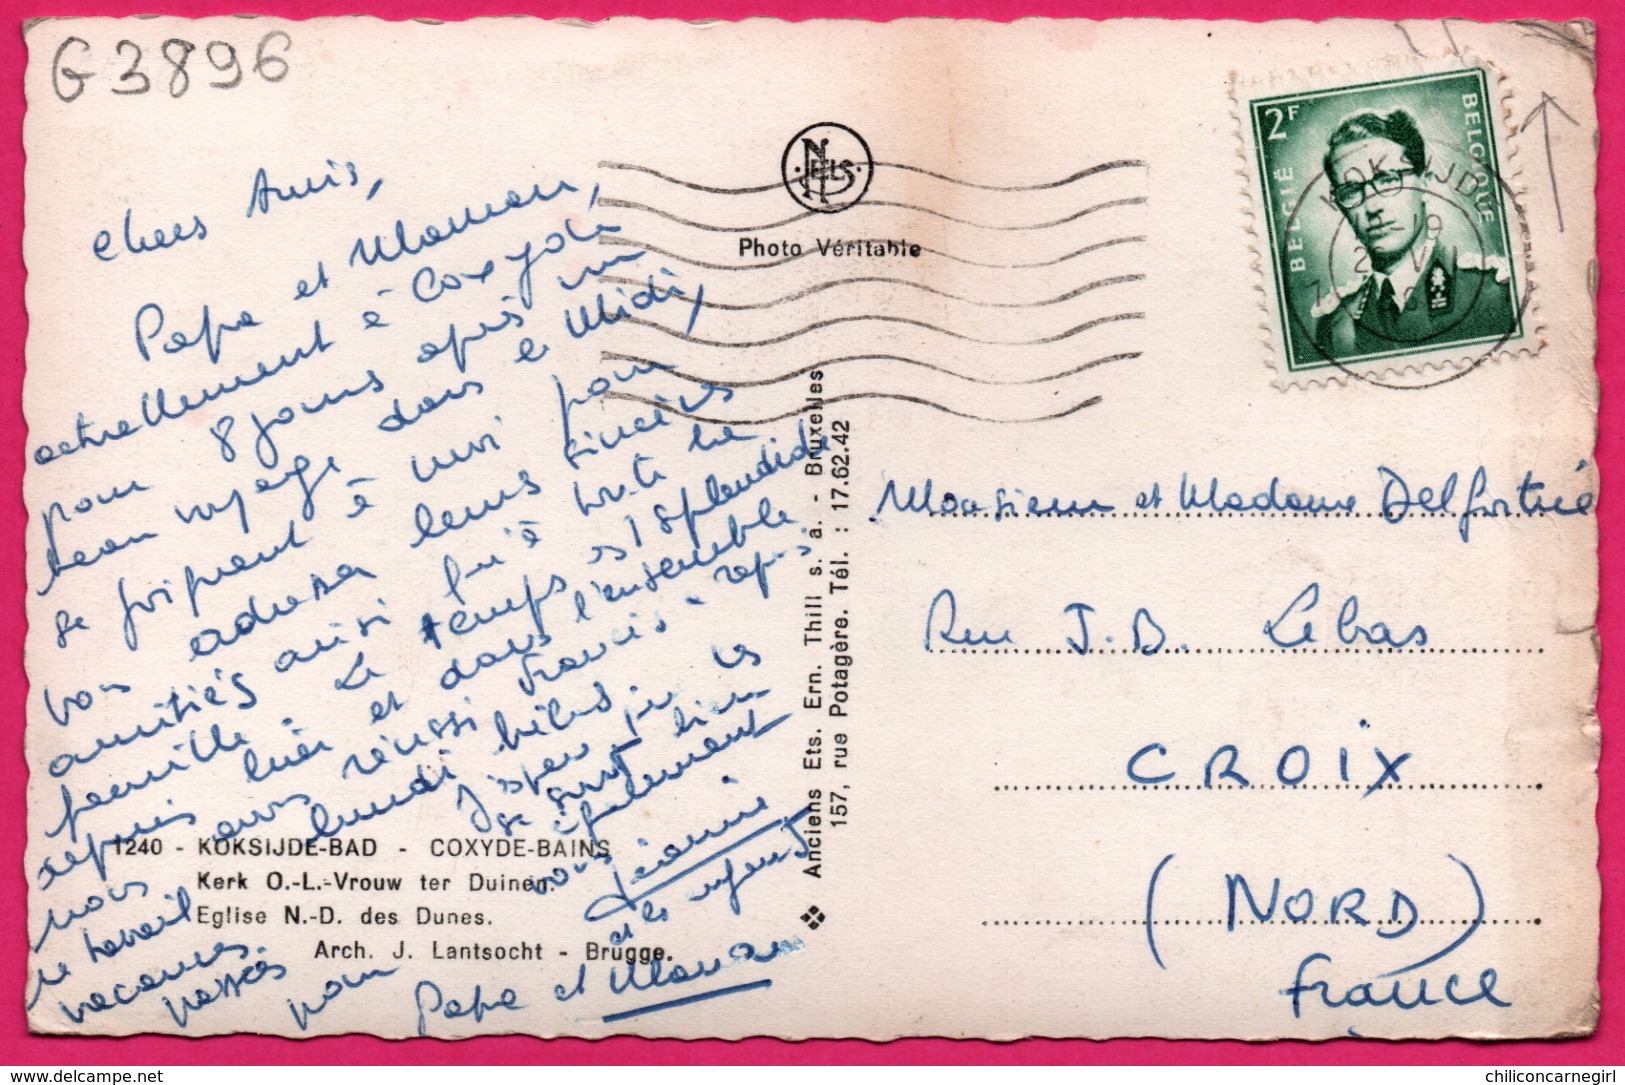 G3896
Chers Amis,
Papa et Maman,
actuellement à Coxyde
pour 8 jours après un
beau voyage dans le Midi,
se joignent à moi pour
vous adresser leurs sincères
amitiés ainsi qu'à toute la
famille. Le temps est splendide
depuis hier et dans l'ensemble
nous avons réussi. Francis a repris
le travail lundi hélas les
vacances
passées
pour
vous également
Jeannine
et les enfants
Papa et Maman
NELS
Photo Véritable
1240 - KOKSIJDE-BAD - COXYDE-BAINS
Kerk O.-L.-Vrouw ter Duinen.
Eglise N.-D. des Dunes.
Arch. J. Lantsocht - Brugge.
Anciens Ets. Ern. Thill s. a. - Bruxelles
157, rue Potagère. Tél. : 17.62.42
2F
BELGIË
BELGIQUE
KOKSIJD
Monsieur et Madame Delfortrie
Rue J.B. Lebas
CROIX
(NORD)
France
www.delcampe.net
chiliconcarnegirl